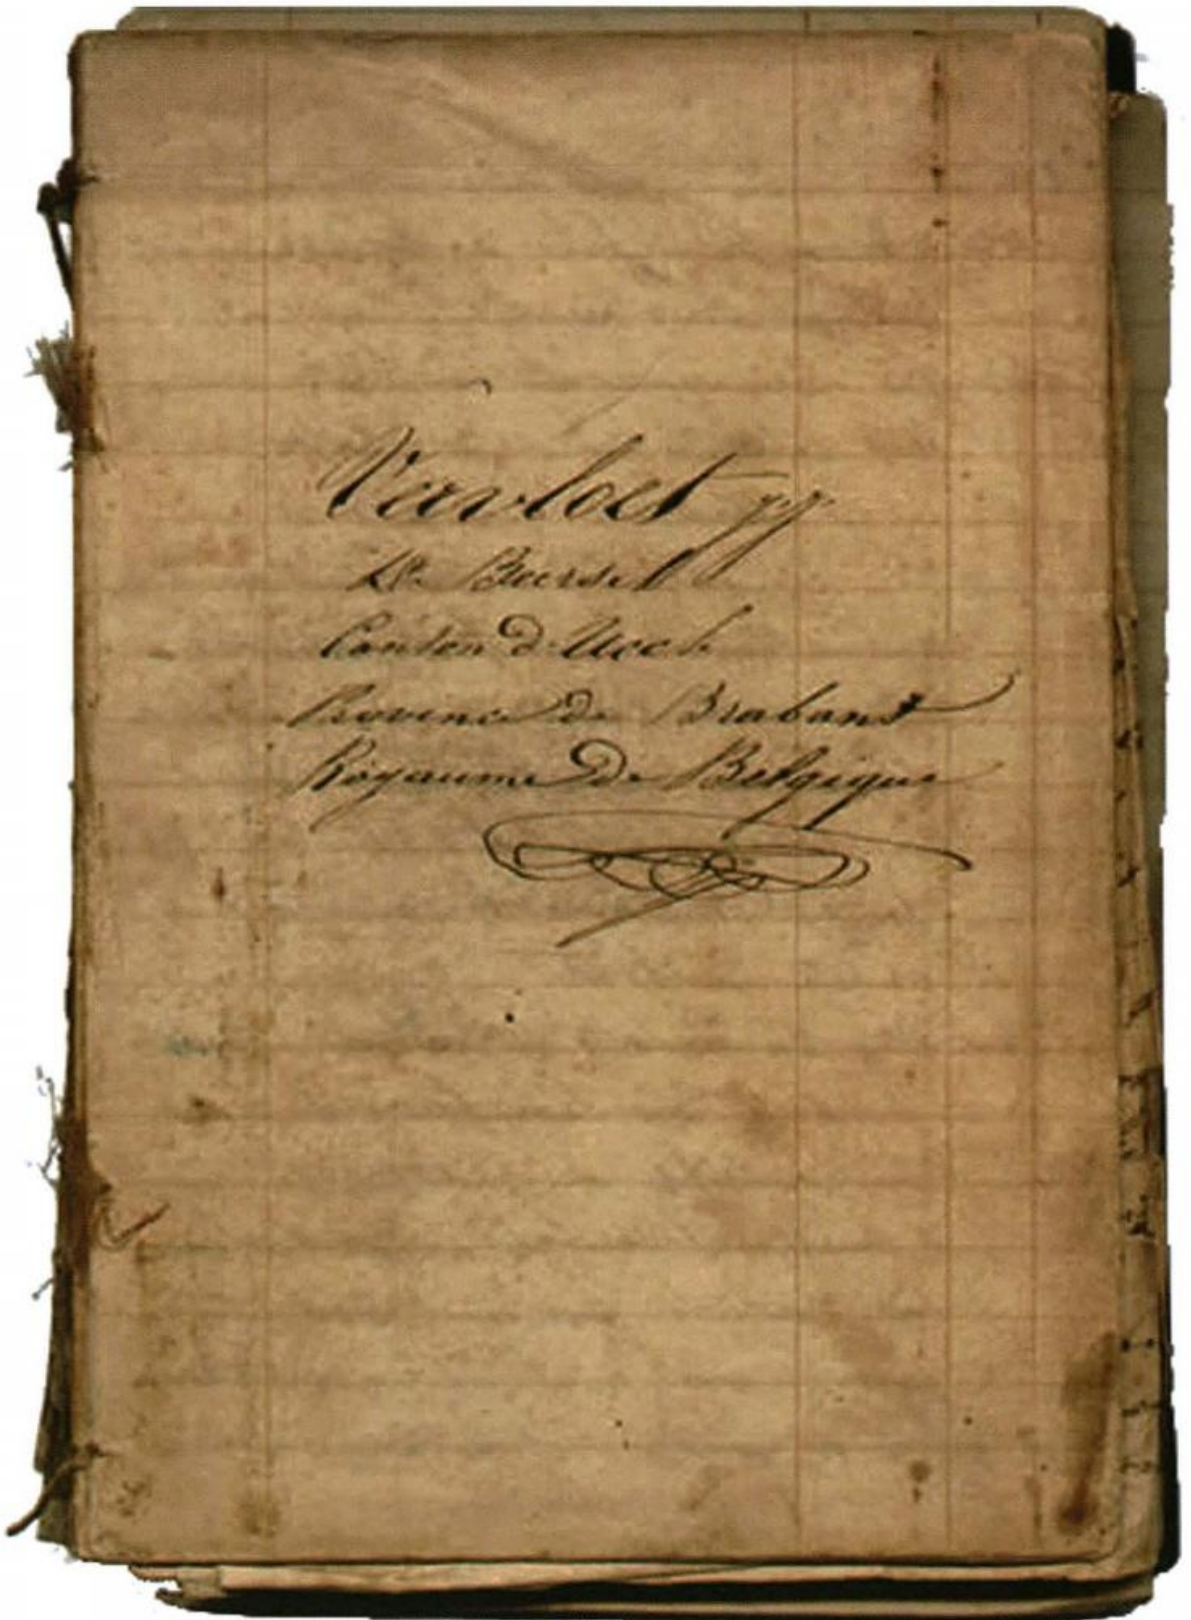 Vervloet
De Beersel
Canton d'Uccle
Province de Brabant
Royaume de Belgique